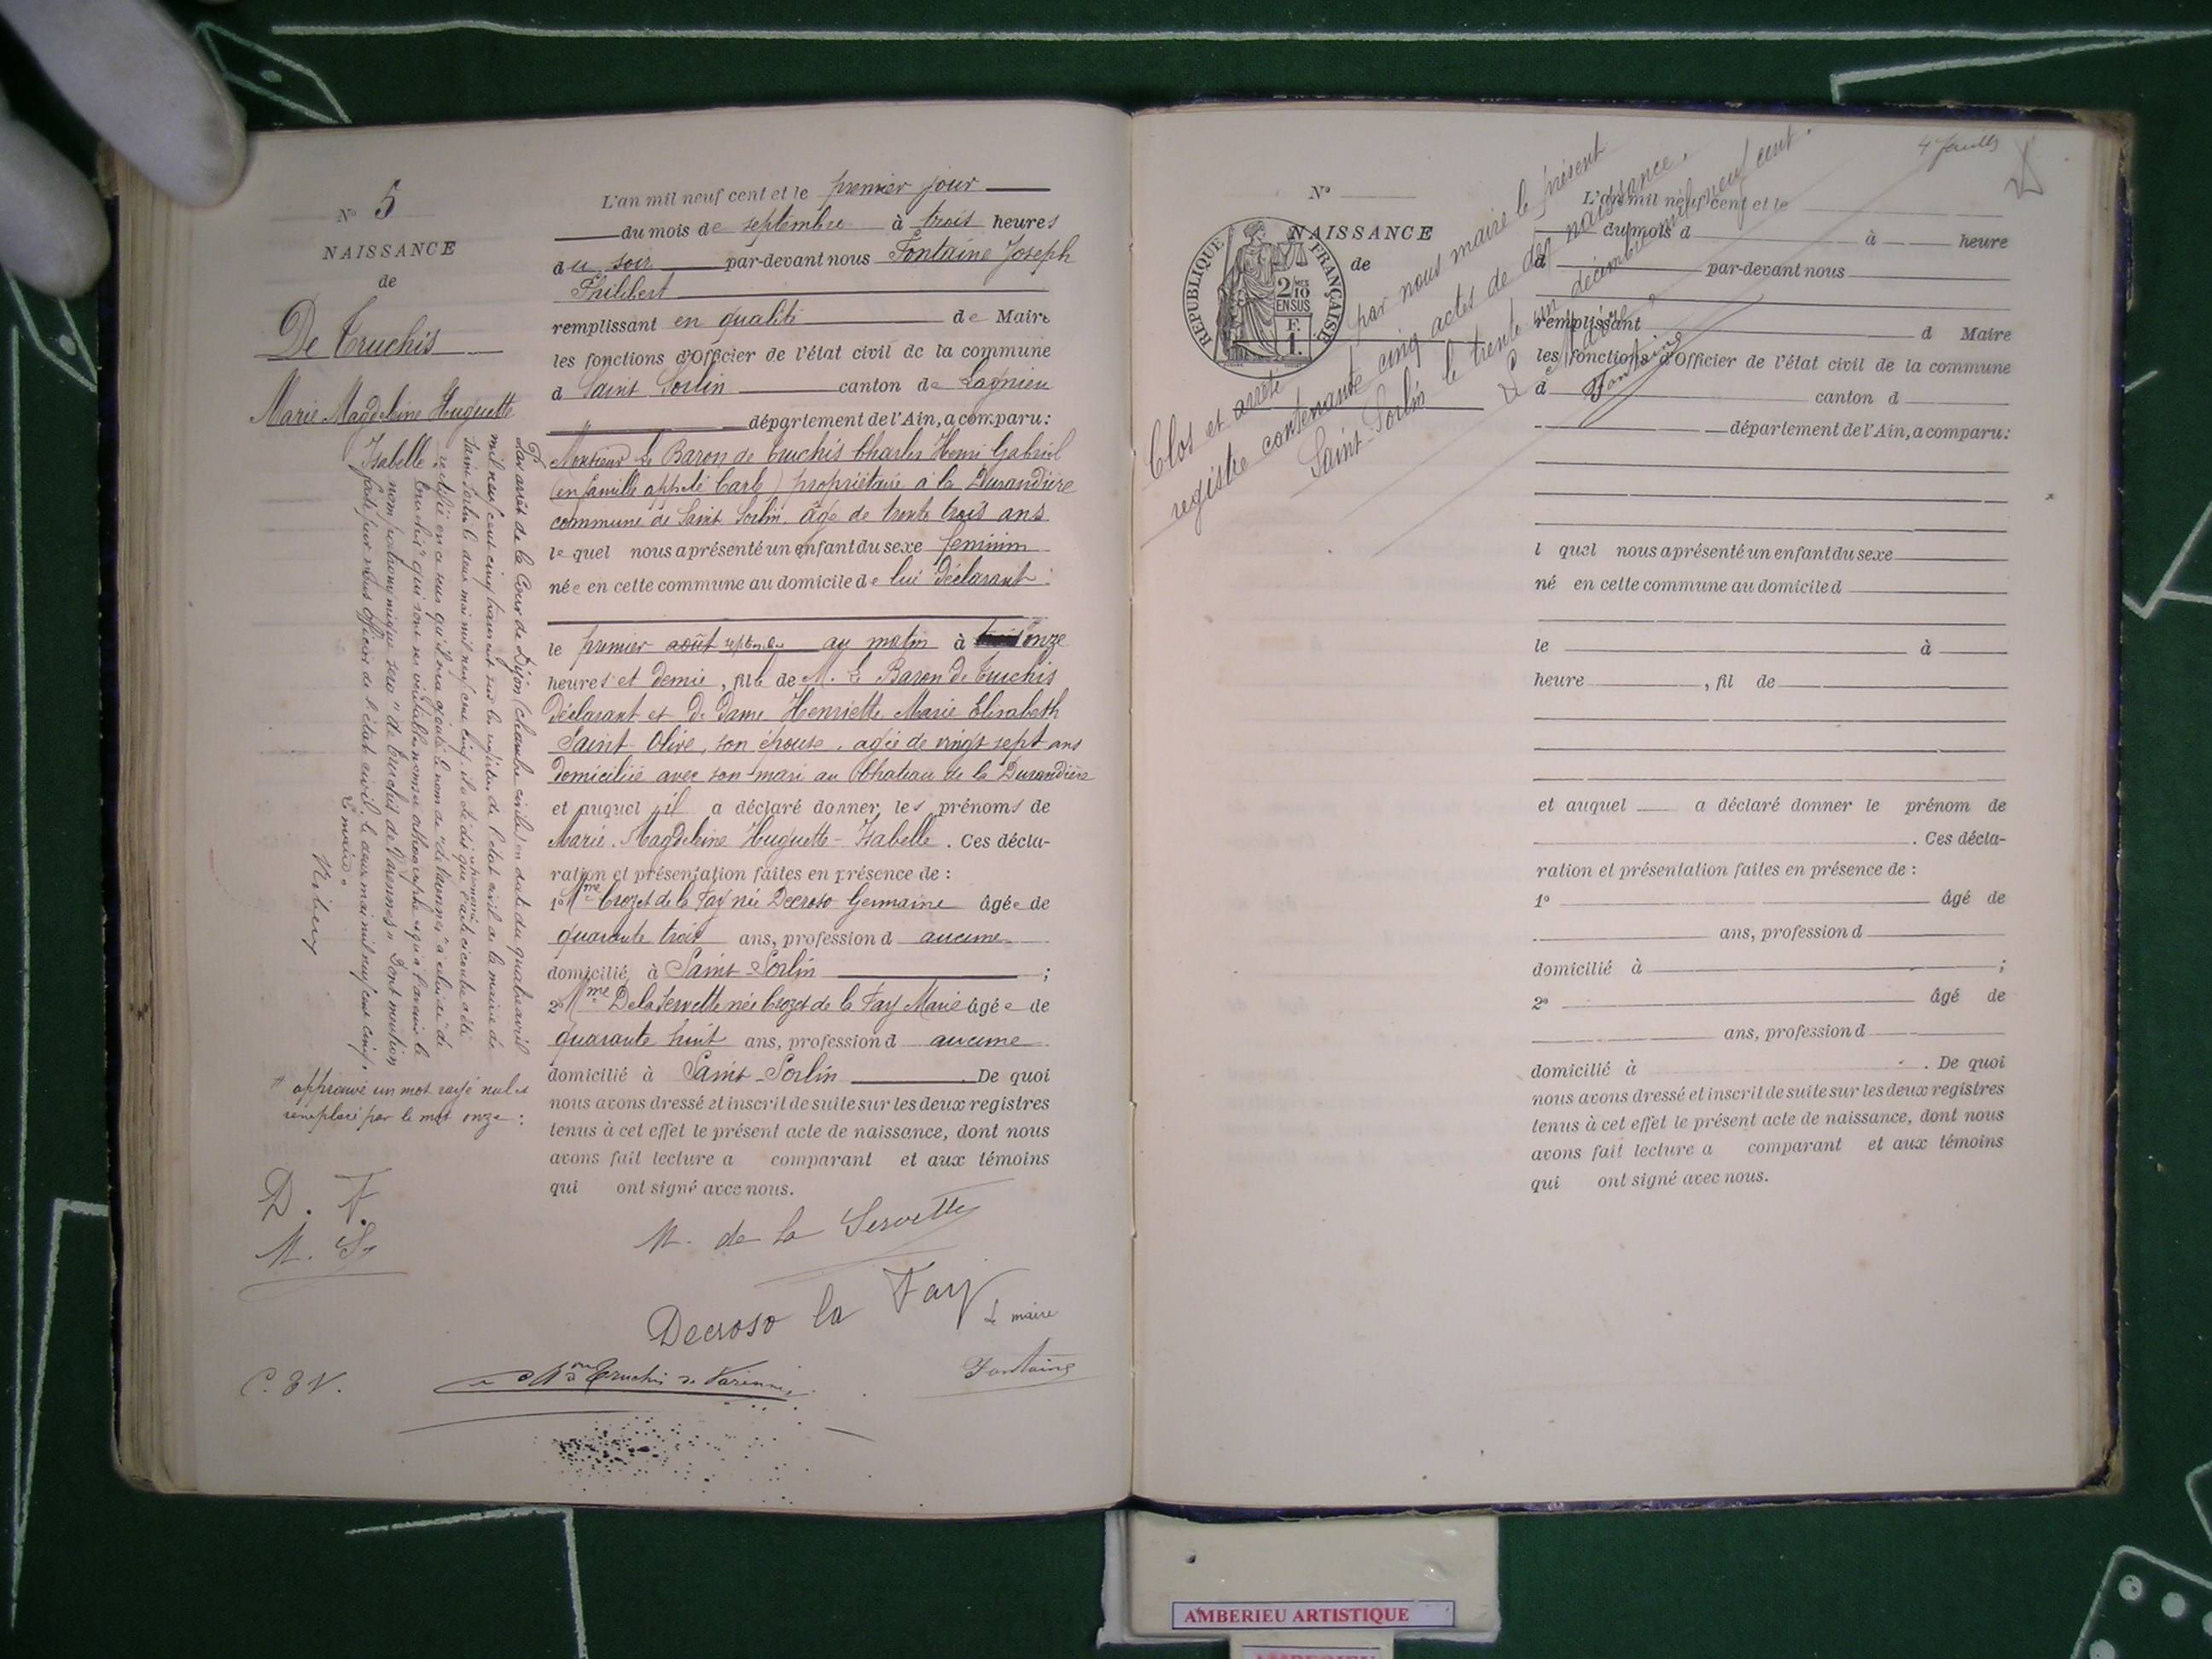 N° 5
NAISSANCE
de
De Truchis
Marie Magdeleine Huguette
Isabelle
L'an mil neuf cent et le premier jour
du mois de septembre à trois heures
du soir par-devant nous Fontaine Joseph
Philibert
remplissant en qualité de Maire
les fonctions d'Officier de l'état civil de la commune
d Saint Sorlin canton de Lagnieu
département de l'Ain, a comparu:
Monsieur le Baron de Truchis Charles Henri Gabriel
(en famille appelé Carle) propriétaire à la Durandière
commune de Saint Sorlin, âgé de trente trois ans
le quel nous a présenté un enfant du sexe féminin
née en cette commune au domicile de lui déclarant
le premier août septembre au matin à onze
heures et demie, fille de M. le Baron de Truchis
déclarant et de Dame Henriette Marie Elisabeth
Saint-Olive, son épouse, agée de vingt sept ans
domiciliée avec son mari au Chateau de la Durandière
et auquel il a déclaré donner les prénoms de
Marie-Magdeleine Huguette-Isabelle. Ces décla-
ration et présentation faites en présence de :
1° Mme Crozet de la Fay née Decroso Germaine âgée de
quarante trois ans, profession d aucune
domicilié à Saint-Sorlin ;
2° Mme De la Servette née Crozet de la Fay Marie âgée de
quarante huit ans, profession d aucune
domicilié à Saint-Sorlin . De quoi
nous avons dressé et inscrit de suite sur les deux registres
tenus à cet effet le présent acte de naissance, dont nous
avons fait lecture a comparant et aux témoins
qui ont signé avec nous.
Par arrêt de la Cour de Dijon (chambre civile) en date du quatre avril
mil neuf cent cinq transcrit sur les registres de l'état civil de la mairie de
Saint Sorlin le deux mai mil neuf cent cinq, il a été dit que l'acte ci contre a été
rectifié en ce sens qu'il sera ajouté le nom de "de Varennes" à celui de "de
Truchis" qui sont ses véritables noms et orthographe et qu'à l'avenir le
nom patronymique sera "de Truchis de Varennes". Dont mention
faite par nous officier de l'état civil, le deux mai mil neuf cent cinq,
Le maire
approuvé un mot rayé nul et
remplacé par le mot onze :
D. F.
M. S
M. de la Servette
Decroso la Fay
Le maire
Fontaine
Bon de Truchis de Varennes
C. T V.
4 feuilles
Clos et arrêté par nous maire le présent
registre contenant cinq actes de naissance.
Saint-Sorlin le trente un décembre mil neuf cent.
Le Maire
Fontaine
N°
NAISSANCE
de
REPUBLIQUE FRANÇAISE
2/10
EN SUS
F.
1.
L'an mil neuf cent et le
du mois d à heure
d par-devant nous
remplissant d Maire
les fonctions d'Officier de l'état civil de la commune
d canton d
département de l'Ain, a comparu:
l quel nous a présenté un enfant du sexe
né en cette commune au domicile d
le à
heure , fil de
et auquel a déclaré donner le prénom de
. Ces décla-
ration et présentation faites en présence de :
1° âgé de
ans, profession d
domicilié à ;
2° âgé de
ans, profession d
domicilié à . De quoi
nous avons dressé et inscrit de suite sur les deux registres
tenus à cet effet le présent acte de naissance, dont nous
avons fait lecture a comparant et aux témoins
qui ont signé avec nous.
AMBERIEU ARTISTIQUE